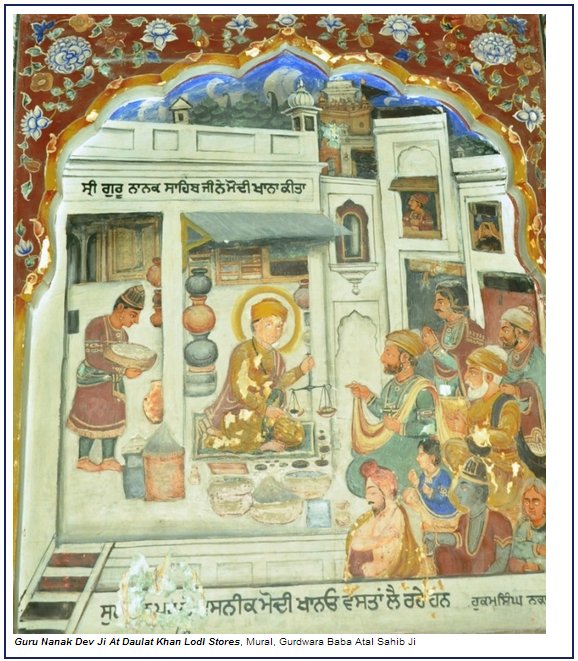 ਸ੍ਰੀ ਗੁਰੂ ਨਾਨਕ ਸਾਹਿਬ ਜੀਨੇ ਮੋਦੀ ਖਾਨਾ ਕੀਤਾ
ਮੋਦੀ ਖਾਨਓ ਵਸਤਾਂ ਲੈ ਰਹੇ ਹਨ ਹੁਕਮਸਿੰਘ
Guru Nanak Dev Ji At Daulat Khan Lodl Stores, Mural, Gurdwara Baba Atal Sahib Ji